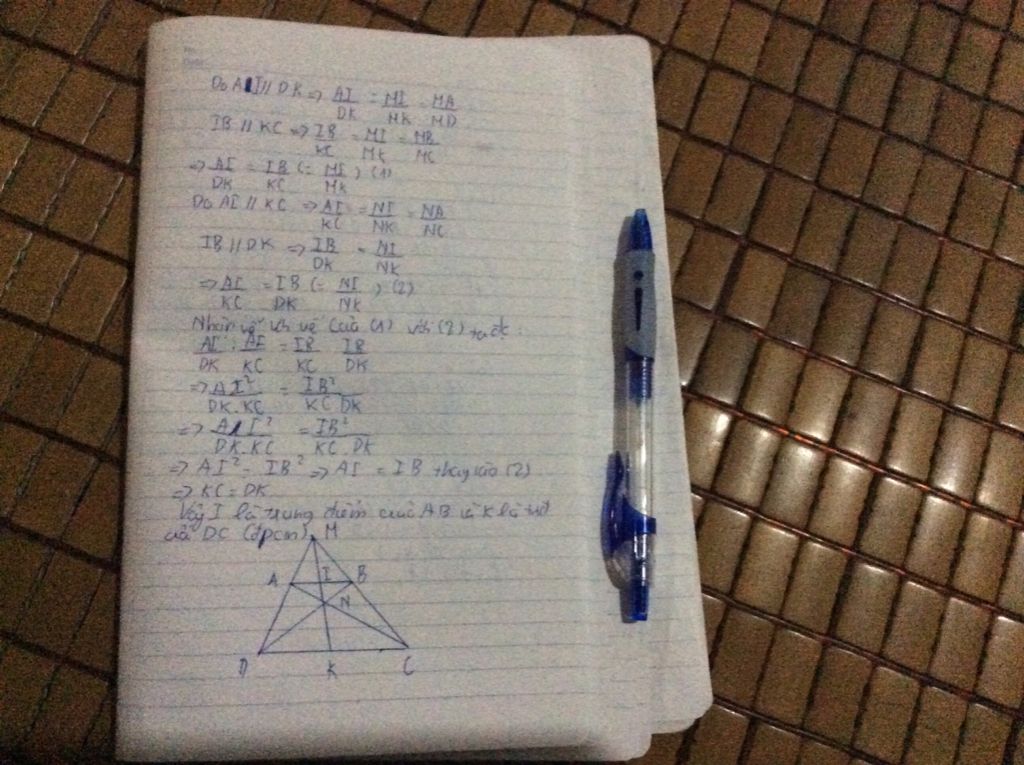 Do AI // DK => AI/DK = MI/MK = MA/MD
IB // KC => IB/KC = MI/MK = MB/MC
=> AI/DK = IB/KC (= MI/MK) (1)
Do AI // KC => AI/KC = NI/NK = NA/NC
IB // DK => IB/DK = NI/NK
=> AI/KC = IB/DK (= NI/NK) (2)
Nhân vế với vế của (1) với (2) ta đc:
AI/DK . AI/KC = IB/KC . IB/DK
=> AI²/DK.KC = IB²/KC.DK
=> AI²/DK.KC = IB²/KC.DK
=> AI² = IB² => AI = IB thay vào (2)
=> KC = DK
Vậy I là trung điểm của AB và K là tđ
của DC (đpcm)
M
A I B
N
D K C